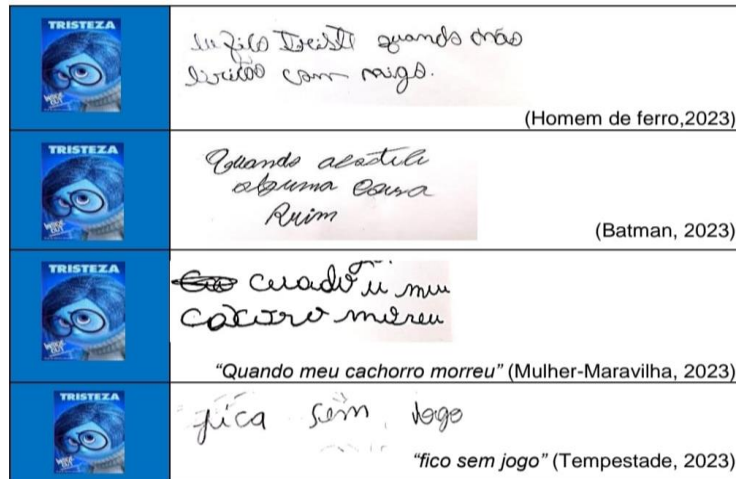 TRISTEZA
Eu fico Treiste quando não
biricão com migo.
(Homem de ferro,2023)
TRISTEZA
Quando acontece
alguma coisa
Ruim
(Batman, 2023)
TRISTEZA
cuado u meu
cacoro moreu
"Quando meu cachorro morreu" (Mulher-Maravilha, 2023)
TRISTEZA
fica sem jogo
"fico sem jogo" (Tempestade, 2023)